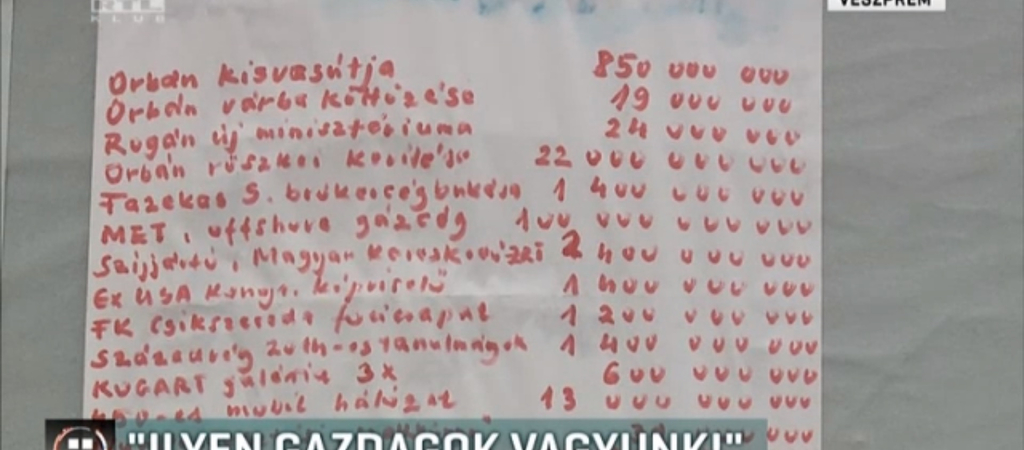 RTL
KLUB
VESZPRÉM
Orbán kisvasútja 850 000 000
Orbán várba költözése 19 000 000
Rogán új minisztóriuma 24 000 000
Orbán 22 000 000 000
Fazekas S. 1 400 000 000
MET, offshore gázcég 100 000 000 000
Szijjártó, Magyar 2 400 000 000
Ex USA képviselő 1 400 000 000
FK Csíkszereda focicsapat 1 200 000 000
Századvég 1 400 000 000
KOGART galéria 3x 600 000 000
mobil hálózat 13 000 000 000
000
"ILYEN GAZDAGOK VAGYUNK!"